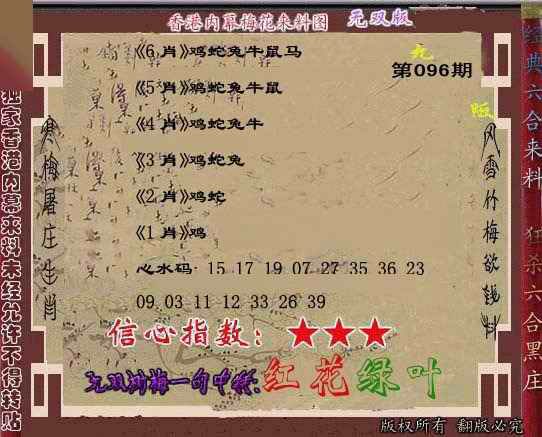 香港内幕梅花来料图 无双版
《6 肖》鸡蛇兔牛鼠马
九
第096期
《5 肖》鸡蛇兔牛鼠
《4 肖》鸡蛇兔牛
《3 肖》鸡蛇兔
《2 肖》鸡蛇
《1 肖》鸡
心水码: 15 17 19 07 27 35 36 23
09 03 11 12 33 26 39
信心指数: ★★★
无双剑梅一句中特:红花绿叶
独家香港内幕来料未经允许不得转贴
寒梅屠庄生肖
风雪竹梅欲钱料
经典六合来料
狂杀六合黑庄
版权所有 翻版必究